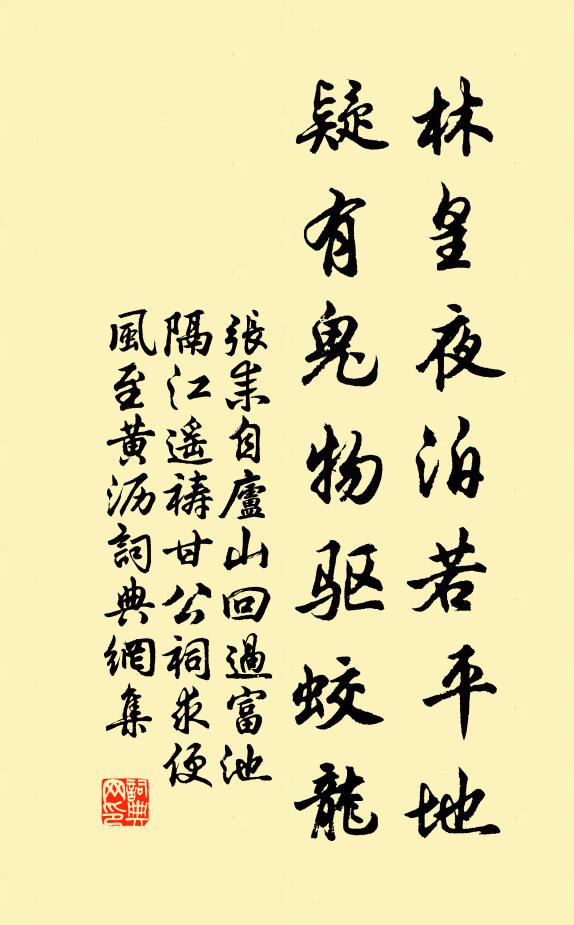 林皇夜泊若平地
疑有鬼物驱蛟龍
張耒自廬山回過富池
隔江遥禱甘公祠求便
風至黄沥詞典網集
詞典网印